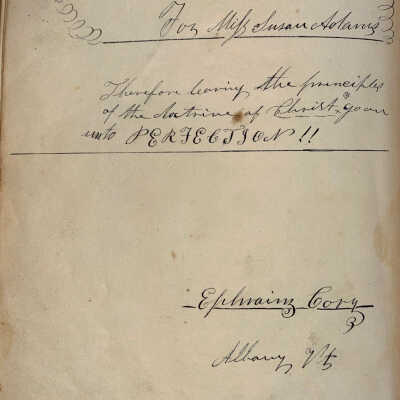 For Miss Susan Adams
Therefore leaving the principles
of the doctrine of Christ, go on
unto PERFECTION!!
Ephraim Cory
Albany Vt